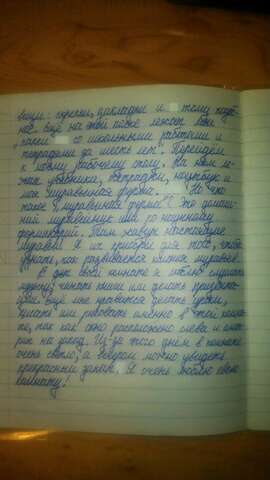 вещи: скрепки, закладки и тому подоб-
ное. Ещё на этой полке лежат два
пакета со школьными работами и
тетрадями за шесть лет. Перейдём
к моему рабочему столу. На нём ле-
жат учебники, тетрадки, ноутбук и
моя муравьиная ферма. На что
такое муравьиная ферма? Это домаш-
ний муравейник или по научному
формикарий. Там живут настоящие
муравьи. Я их приобрёл для того, чтобы
узнать, как развивается колония муравьёв.
В своей комнате я люблю слушать
музыку, читать книги или делать
Ещё мне нравится делать уроки,
писать или рисовать именно в этой комна-
те, так как окно расположено слева и смот-
рит на запад. Из-за этого днём в комнате
очень светло, а вечером можно увидеть
прекрасный закат. Я очень люблю свою
комнату!